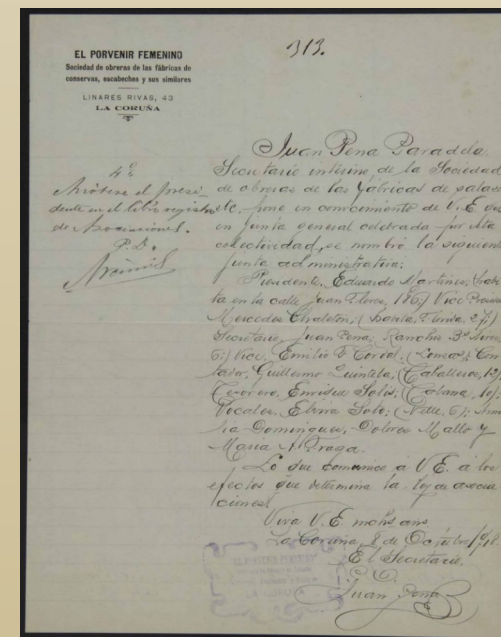 313.
EL PORVENIR FEMENINO
Sociedad de obreras de las fábricas de
conservas, escabeches y sus similares
LINARES RIVAS, 43
LA CORUÑA
4º
Anótese el presi-
dente en el libro registro
de Asociaciones.
P. D.
Juan Pena Paradela
Secretario interino de la Sociedad
de obreras de las fábricas de salazon
etc. pone en conocimiento de V. E. que
en junta general celebrada por esta
colectividad, se nombró la siguiente
junta administrativa:
Presidente, Eduardo Martinez, habi-
ta en la calle Juan Florez, 186;) Vice
Mercedes (
Secretario, Juan Pena,
6;) Vice, Emilio (
tador, Guillermo Quintela, (Caballeros, 12)
Tesorero, Enrique Solis; (Cabana, 10);
Vocales, Elvira Soto;
Dominguez, Dolores Mallo y
Maria Fraga.
Lo que comunico á V. E. á los
efectos que determina la ley de asocia
ciones.
Viva V. E. muchos años
La Coruña, 8 de Octubre 1918.
El Secretario,
Juan Pena
"EL PORVENIR FEMENINO"
LA CORUÑA